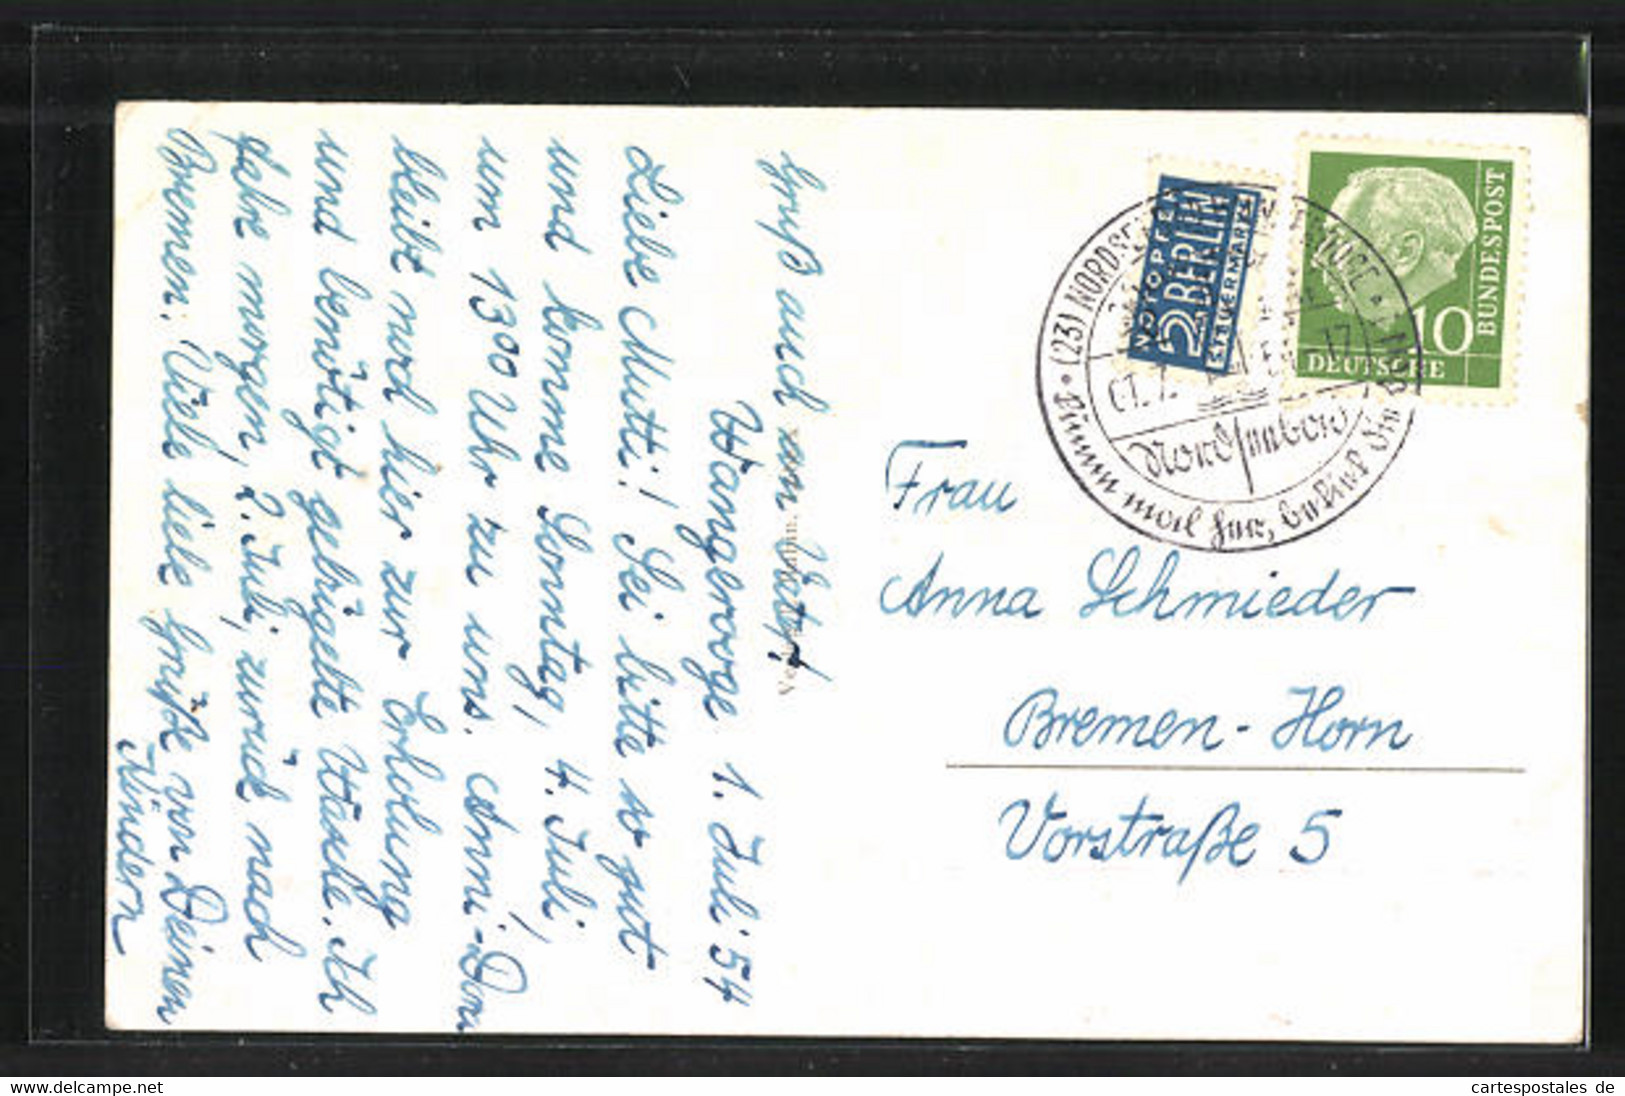 Gruß auch an Vater!
Wangerooge 1. Juli 54
Liebe Mutti! Sei bitte so gut
und komme Sonntag, 4. Juli,
um 13⁰⁰ Uhr zu uns. Anni-Dou
bleibt noch hier zur Erholung
und benötigt gebügelte Wäsche. Ich
fahre morgen, 2. Juli, zurück nach
Bremen. Viele liebe Grüße von Deinen
Kindern
NOTOPFER
2 BERLIN
STEUERMARKE
DEUTSCHE
BUNDESPOST
10
(23) NORDSEE
Nordseebad
nimm mal her, befreit
Frau
Anna Schmieder
Bremen-Horn
Vorstraße 5
delcampe.net
cartespostales de